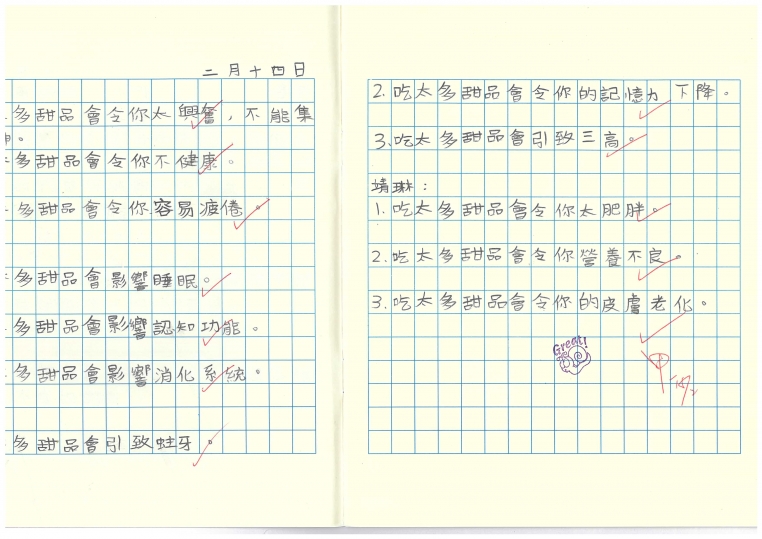 二月十四日
多甜品會令你太興奮，不能集
神。
多甜品會令你不健康。
多甜品會令你容易疲倦。
多甜品會影響睡眠。
多甜品會影響認知功能。
多甜品會影響消化系統。
多甜品會引致蛀牙。
2.吃太多甜品會令你的記憶力下降。
3.吃太多甜品會引致三高。
靖琳：
1.吃太多甜品會令你太肥胖。
2.吃太多甜品會令你營養不良。
3.吃太多甜品會令你的皮膚老化。
Great!